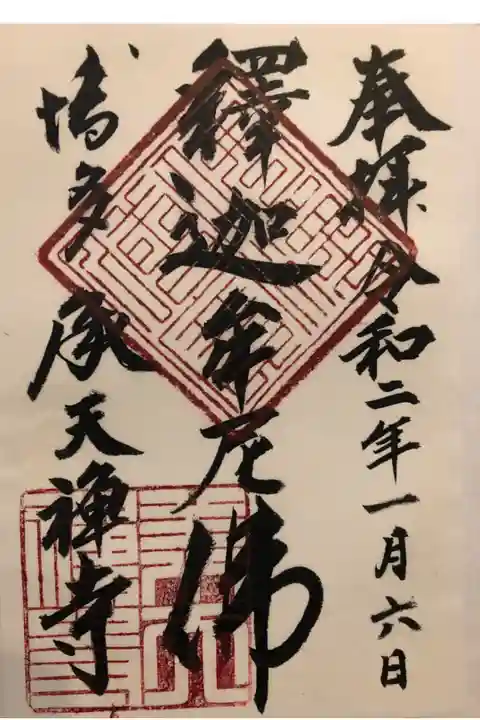 奉拝 令和二年一月六日
釋迦牟尼佛
博多 承天禅寺